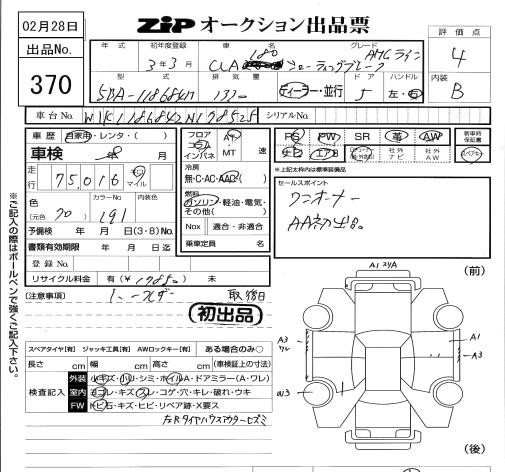 02月28日
ZIP オークション出品票
評価点
4
出品No.
370
年式 初年度登録 車名 グレード
3年3月 CLA 180 シューティングブレーク AMGライン
型式 排気量 ドア ハンドル
5BA-118684M 1330 ディーラー・並行 5 左・右
内装
B
車台No. シリアルNo.
車歴 自家用・レンタ・( )
フロア コラム インパネ AT・MT 速
PS PW SR 革 AW
新車時保証書
車検 年 月
SB エアB 社外ナビ 社外AW スペアキー
冷房
無・C・AC・AAC
※上記太枠内は標準装備品
走行 75,016 キロ マイル
セールスポイント
ワンオーナー
AA初出品
燃料
ガソリン・軽油・電気・その他( )
色 (元色 ) カラーNo. 内装色
191
Nox 適合・非適合
予備検 年 月 日(3・8)No.
書類有効期限 年 月 日迄
乗車定員 名
登録No.
リサイクル料金 有(¥ ) 未
(前)
A1
[注意事項] 取後日
初出品
A3
A1
A3
W3
スペアタイヤ[有] ジャッキ工具[有] AWロックキー[有] ある場合のみ○
長さ cm 幅 cm 高さ cm (車検証上の寸法)
検査記入
外装 小キズ・凹・シミ・ホイルA・ドアミラー(A・ワレ)
室内 ヨゴレ・キズ・スレ・コゲ・穴・キレ・破れ・ウキ
FW トビ石・キズ・ヒビ・リペア跡・X要ス
左Rタイヤハウスアウターヒズミ
(後)
※ご記入の際はボールペンで強くご記入下さい。